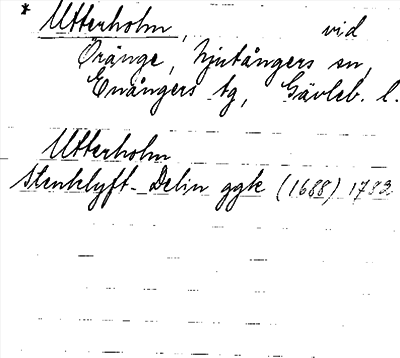 * Utterholm, vid
Öränge, Njutångers sn,
Enångers tg, Gävleb. l.
Utterholm
Stenklyft-Delin ggk (1688) 1783